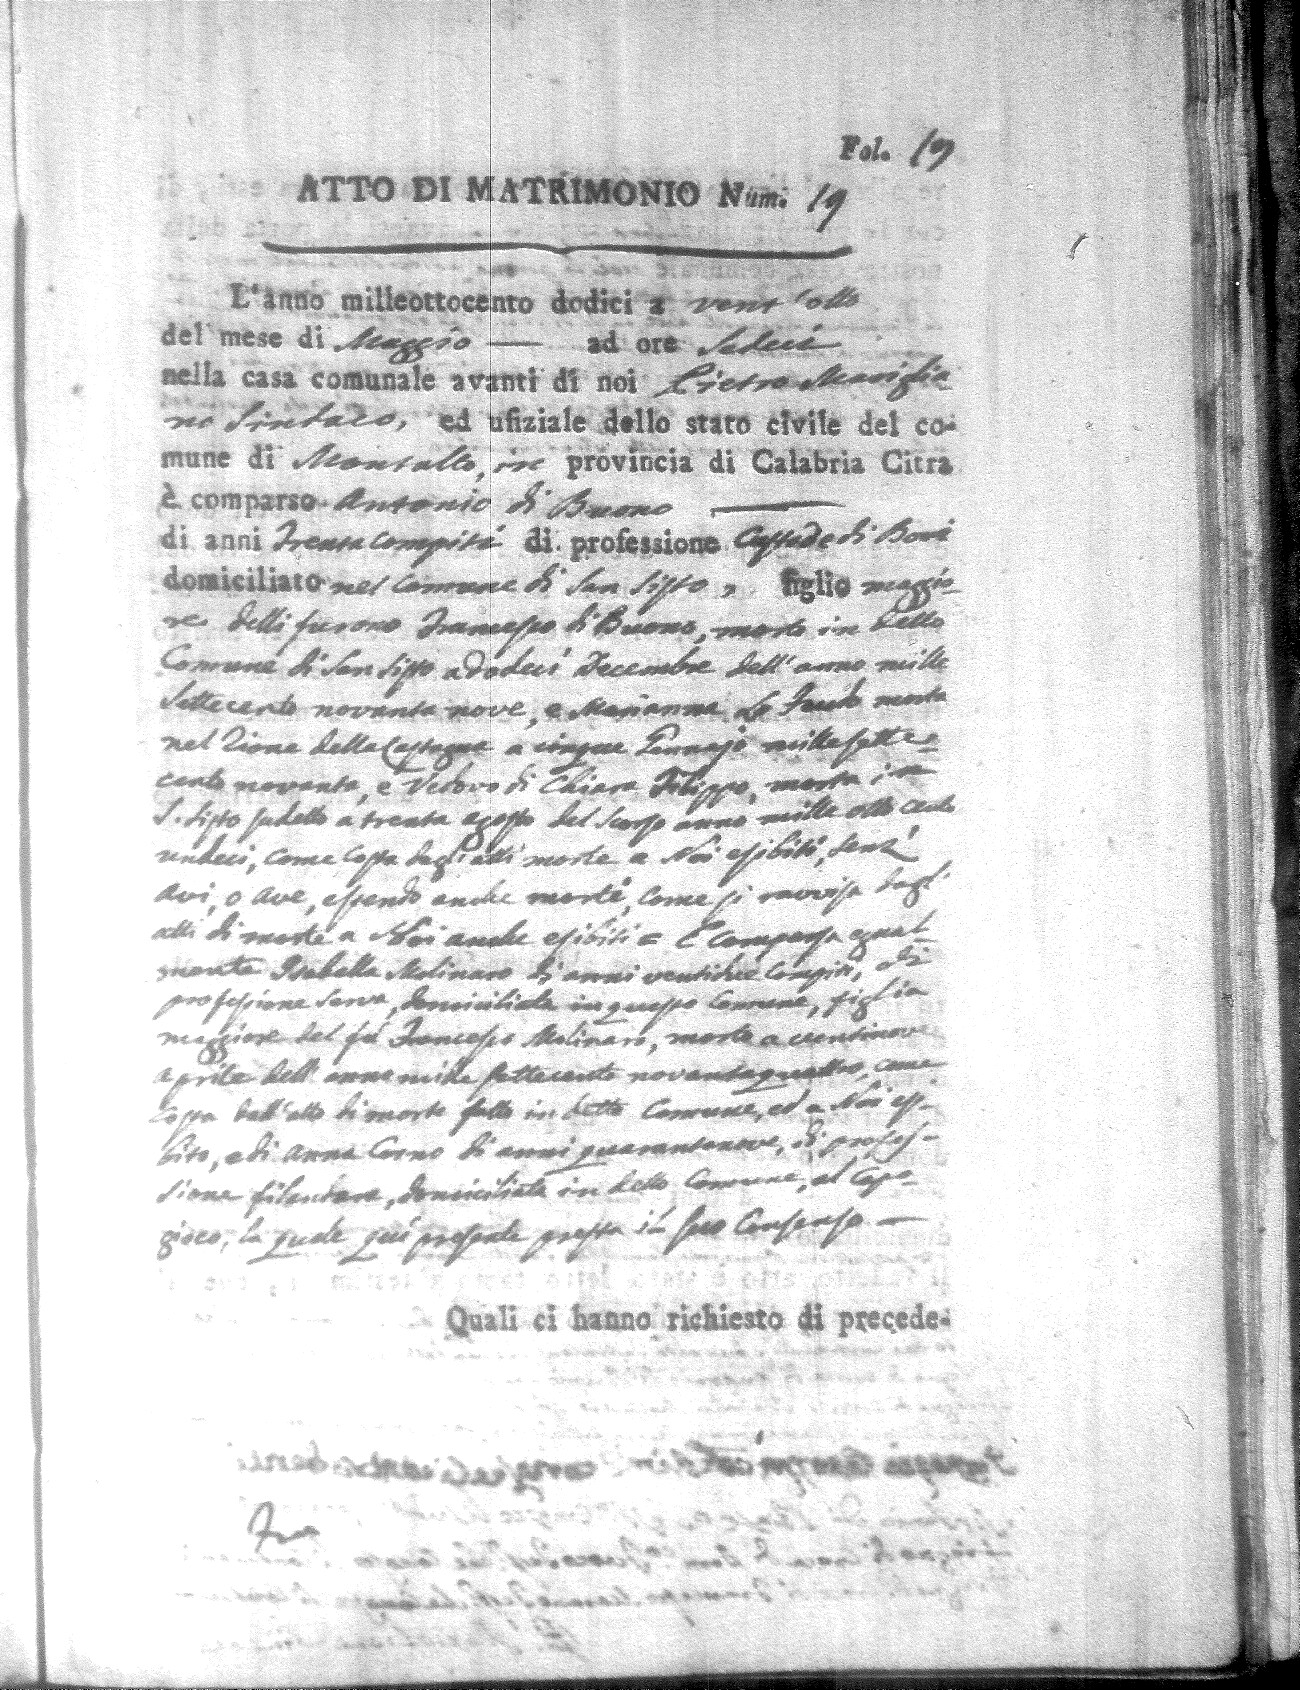 Fol. 19
ATTO DI MATRIMONIO Num: 19
L'anno milleottocento dodici a vent'otto
del mese di Maggio — ad ore Sedeci
nella casa comunale avanti di noi Pietro Maviglia
no Sindaco, ed ufiziale dello stato civile del co-
mune di Montalto, in provincia di Calabria Citra
è comparso Antonio di Buono —
di anni Trenta compiti di professione Custode di Bovi
domiciliato nel Comune di San Sisto, figlio maggio-
re delli furono Francesco di Buono, morto in detto
Comune di San Sisto a dodeci Decembre dell'anno mille
settecento novanta nove, e Marianna Lo morta
nel Rione della Castagna a cinque Gennajo mille sette-
cento novanta, e Vedovo di Chiara Filippo, morta in
S. Sisto sudetto a trenta agosto del scorso anno mille otto cento
undeci, come costa dagli atti morte a Noi esibiti, senz'
avi, o ave, essendo anche morti, come si ravvisa dagl'
atti di morte a Noi anche esibiti = È comparsa egual
mente Isabella Molinaro di anni ventidue compiti, di
professione serva, domiciliata in questo Comune, figlia
maggiore del fù Francesco Molinaro, morto a ventinove
aprile dell'anno mille settecento novantaquattro, come
costa dall'atto di morte fatto in detto Comune, ed a Noi esi-
bito, e di Anna Corno di anni quarantanove, di profes-
sione filandara, domiciliata in detto Comune, al
la quale quì presente presta il suo Consenso —
Quali ci hanno richiesto di precede-